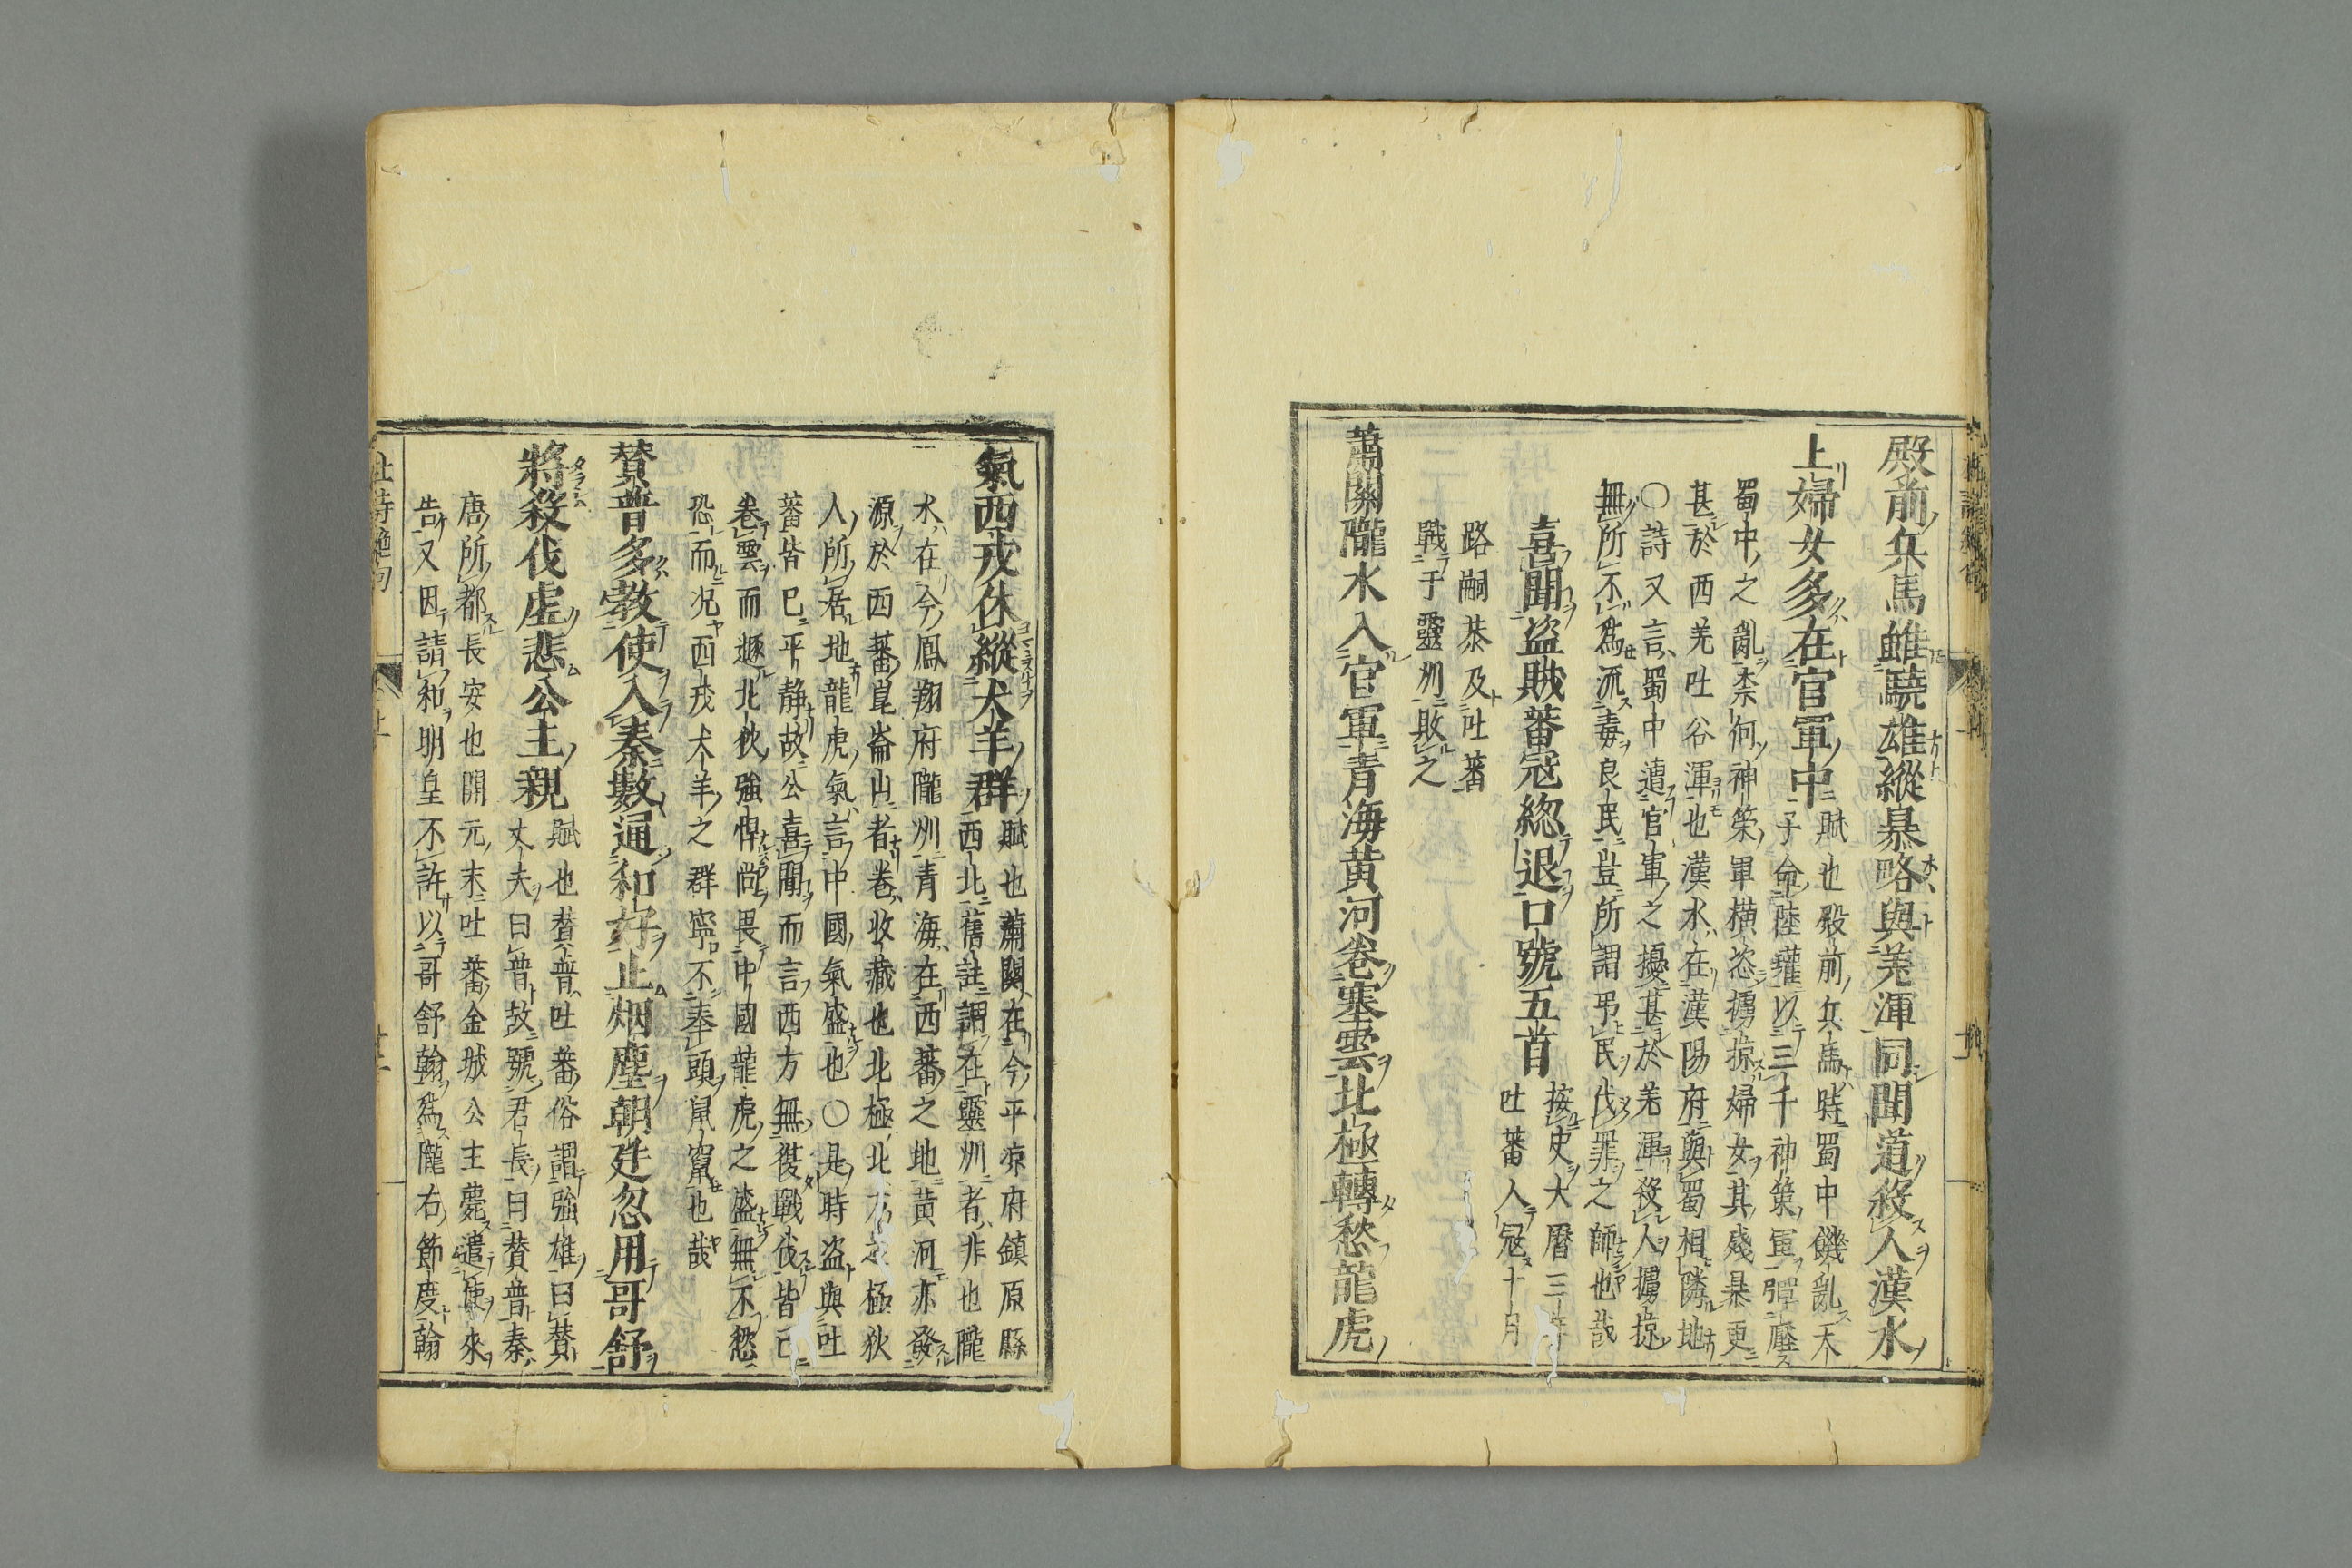 殿前兵馬雖驍雄縱暴略與羌渾同聞道殺人漢水
上婦女多在官軍中
賦也殿前兵馬時蜀中饑亂天
子命陸瓘以三千神策軍彈壓
蜀中之亂柰何神策軍橫恣擄掠婦女其殘暴更
甚於西羌吐谷渾也漢水在漢陽府與蜀相隣地
○詩又言蜀中遣官軍之擾甚於羌渾殺人擄掠
無所不為流毒良民豈所謂弔民伐罪之師也哉
喜聞盜賊蕃寇緫退口號五首
按史大曆三年
吐蕃人寇十月
路嗣恭及吐蕃
戰于靈州敗之
蕭關隴水入官軍青海黄河卷塞雲北極轉愁龍虎
氣西戎休縱犬羊群
賦也蕭関在今平凉府鎮原縣
西北舊註謂在靈州者非也隴
水在今鳳翔府隴州青海在西蕃之地黄河亦發
源於西蕃崑崙山者卷收藏也北極北方之極狄
人所居地龍虎氣言中國氣盛也○是時盜與吐
蕃皆已平静故公喜聞而言西方無復戰伐皆已
卷雲而遯北狄強悍尚畏中國龍虎之盛無不愁
恐而况西戎犬羊之群寧不奉頭鼠竄也哉
賛普多教使入秦數通和好止烟塵朝廷忽用哥舒
將殺伐虚悲公主親
賦也賛普吐蕃俗謂強雄曰賛
丈夫曰普故號君長曰賛普秦
唐所都長安也開元末吐蕃金城公主薨遣使來
告又因請和明皇不許以哥舒翰為隴右節度翰